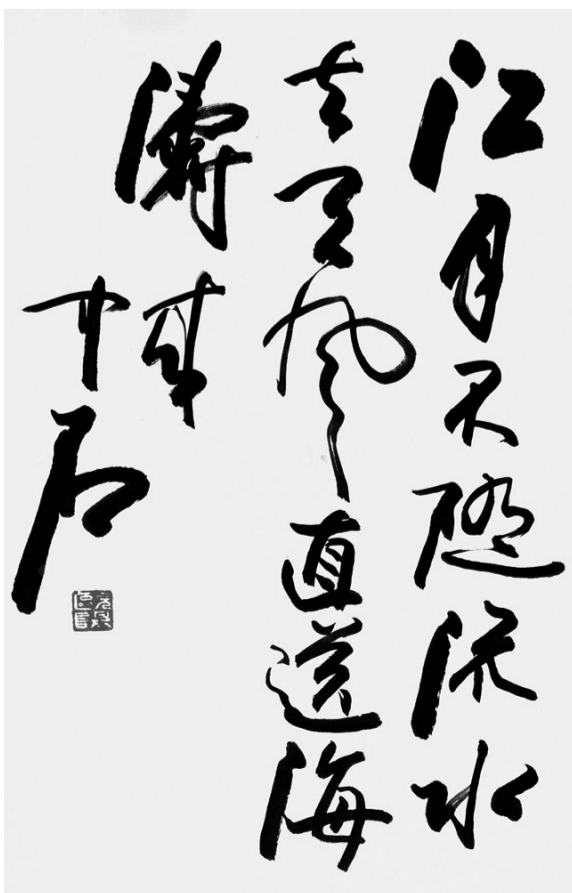 江月不隨流水
去天風直送海
濤來
中石